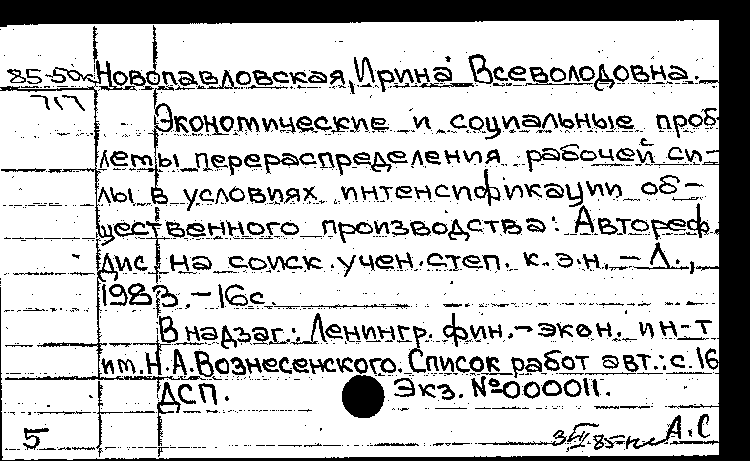 85-50к Новопавловская, Ирина Всеволодовна.
717
Экономические и социальные проб-
лемы перераспределения рабочей си-
лы в условиях интенсификации об-
щественного производства: Автореф.
дис. на соиск. учен. степ. к.э.н. – Л.,
1983. – 16с.
В надзаг.: Ленингр. фин.-экон. ин-т
им. Н.А. Вознесенского. Список работ авт.: с.16
ДСП. Экз. №000011.
5 А.С